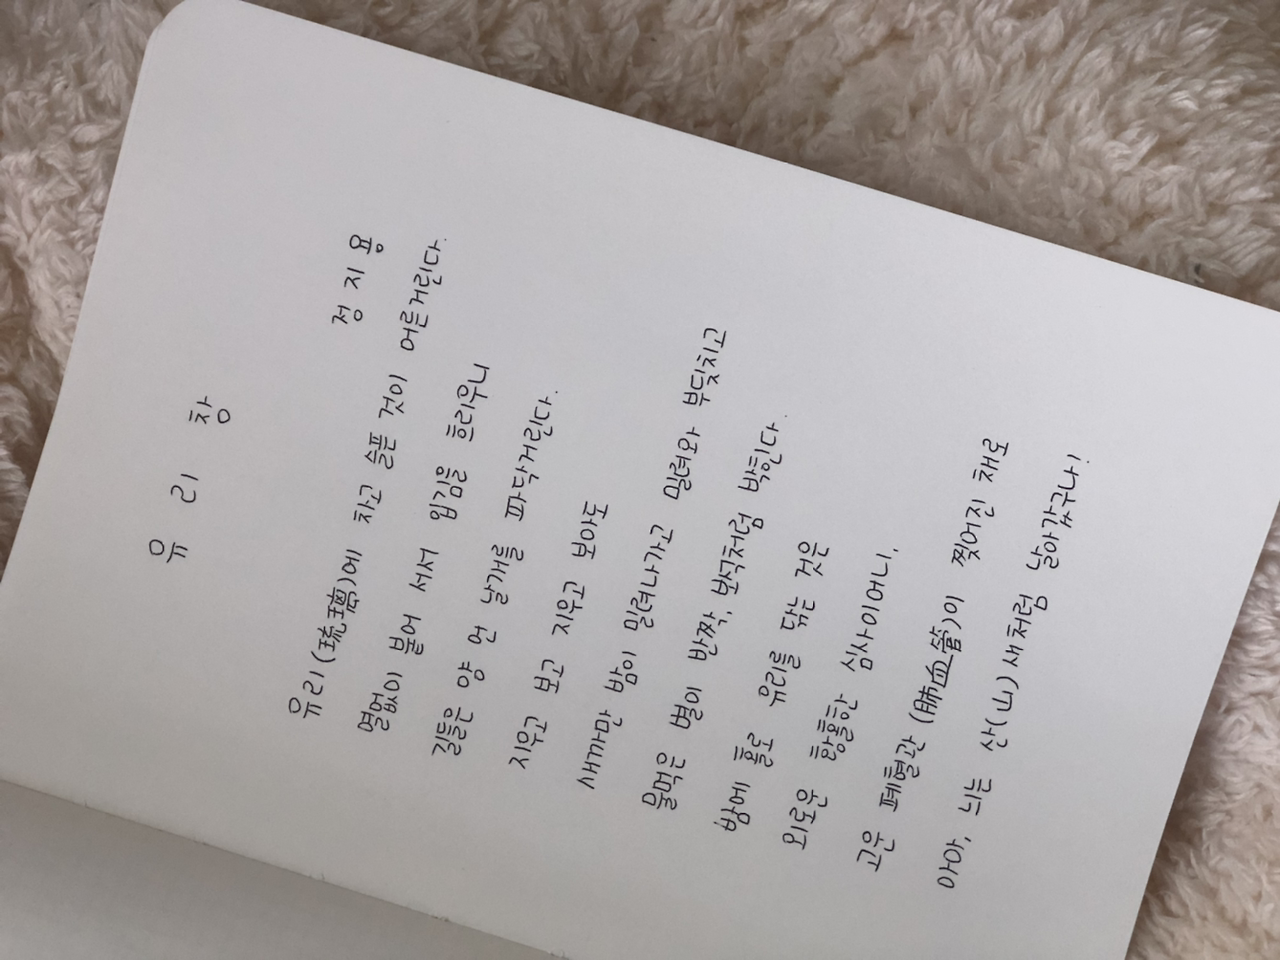 유리창
정지용
유리(琉璃)에 차고 슬픈 것이 어른거린다.
열없이 붙어 서서 입김을 흐리우니
길들은 양 언 날개를 파닥거린다.
지우고 보고 지우고 보아도
새까만 밤이 밀려나가고 밀려와 부딪치고
물먹은 별이 반짝, 보석처럼 박힌다.
밤에 홀로 유리를 닦는 것은
외로운 황홀한 심사이어니,
고운 폐혈관(肺血管)이 찢어진 채로
아아, 늬는 산(山)새처럼 날아갔구나!